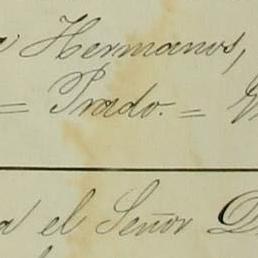 Hermanos,
= Prado. =
el Señor D